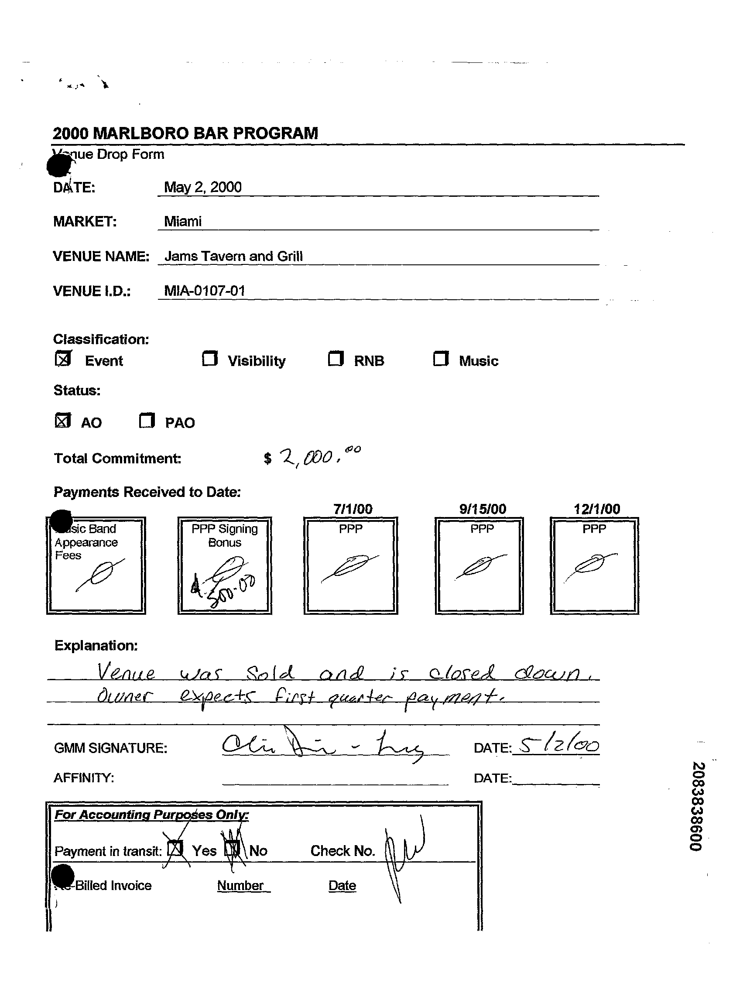 2000 MARLBORO BAR PROGRAM
Venue Drop Form
DATE: May 2, 2000
MARKET: Miami
VENUE NAME: Jams Tavern and Grill
VENUE I.D.: MIA-0107-01
Classification:
☒ Event ☐ Visibility ☐ RNB ☐ Music
Status:
☒ AO ☐ PAO
Total Commitment: $ 2,000.00
Payments Received to Date:
7/1/00 9/15/00 12/1/00
Band PPP Signing PPP PPP PPP
Appearance Bonus
Fees
500.00
Explanation:
Venue was Sold and is closed down.
Owner expects first quarter payment.
GMM SIGNATURE: DATE: 5/2/00
AFFINITY: DATE:
For Accounting Purposes Only:
Payment in transit: ☒ Yes ☒ No Check No.
-Billed Invoice Number Date
2083838600